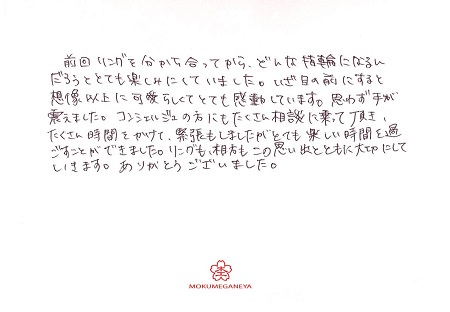 前回リングを分かち合ってから、どんな指輪になるん
だろうととても楽しみにしていました。いざ目の前にすると
想像以上に可愛らしくてとても感動しています。思わず手が
震えました。コンシェルジュの方にもたくさん相談に乗って頂き、
たくさん時間をかけて、緊張もしましたがとても楽しい時間を過
ごすことができました。リングも、相方もこの思い出とともに大切にして
いきます。ありがとうございました。
MOKUMEGANEYA